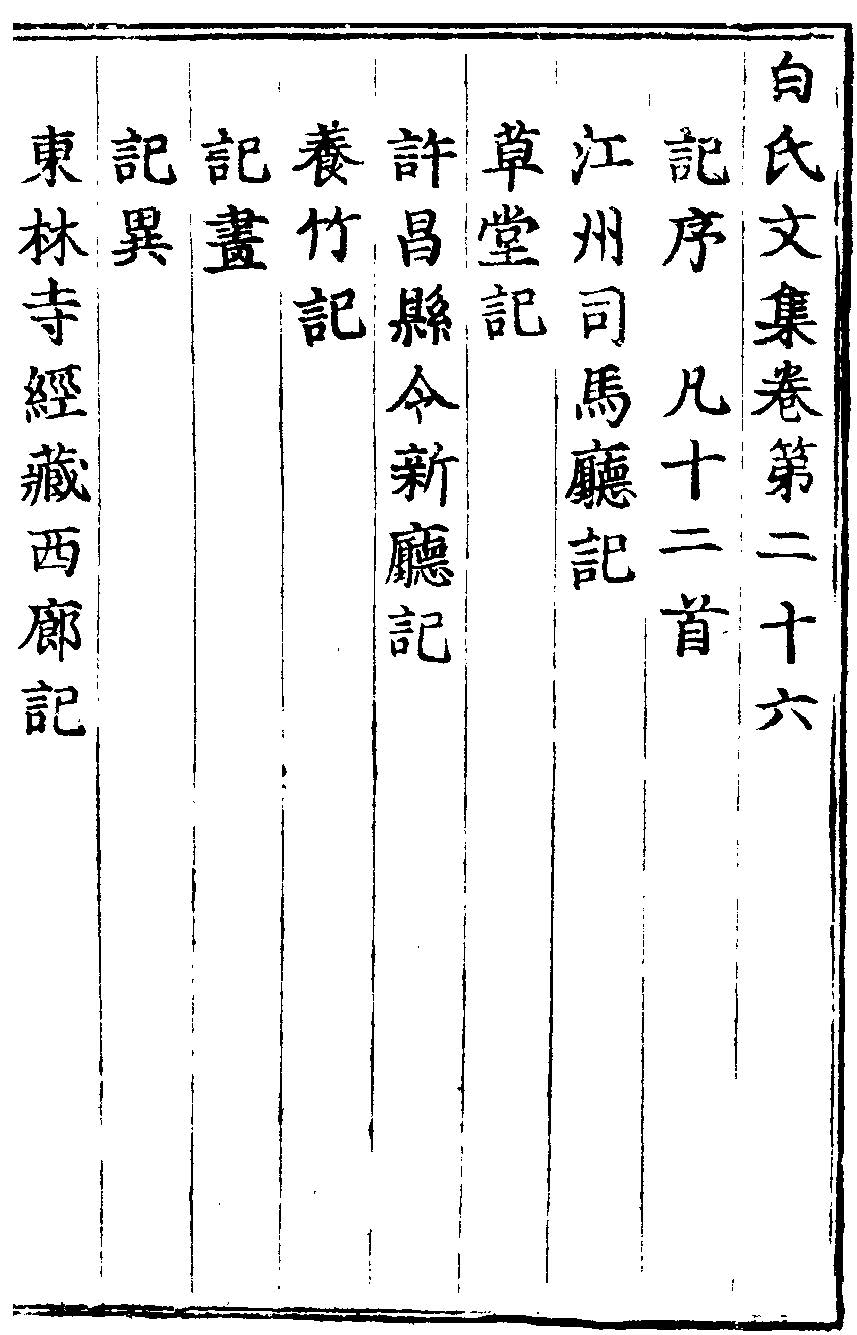 白氏文集卷第二十六
記序　凡十二首
江州司馬廳記
草堂記
許昌縣令新廳記
養竹記
記畫
記異
東林寺經藏西廊記